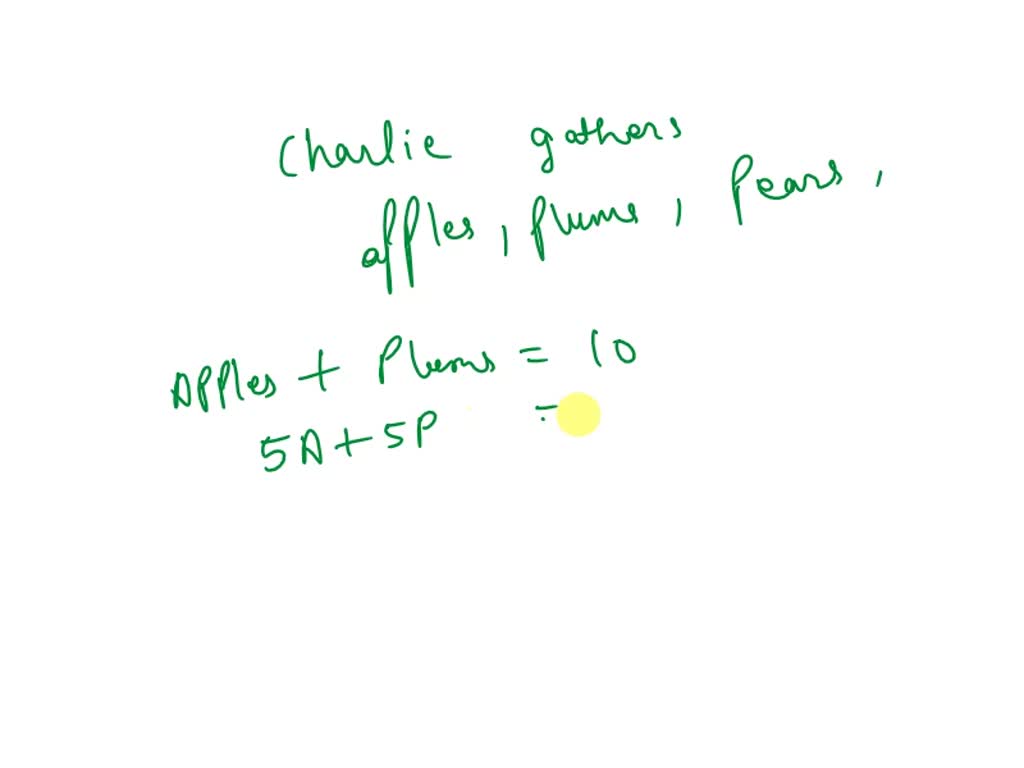 Charlie gathers
apples, plums, Pears,
Apples + Plums = 10
5A+5P =